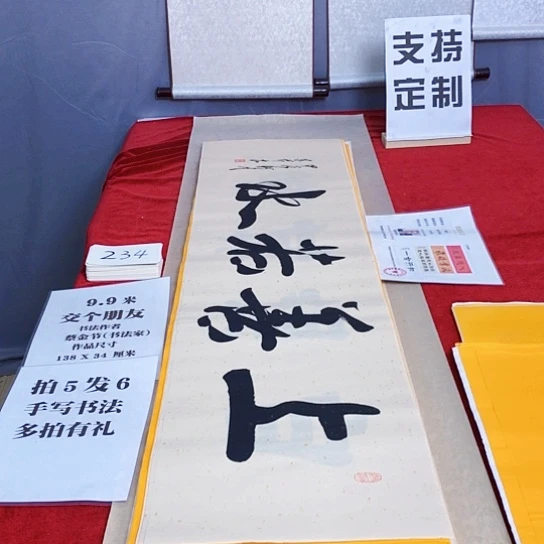 支持
定制
234
9.9 米
交个朋友
书法作者
蔡金节(书法家)
作品尺寸
138 X 34 厘米
拍 5 发 6
手写书法
多拍有礼
上善若水